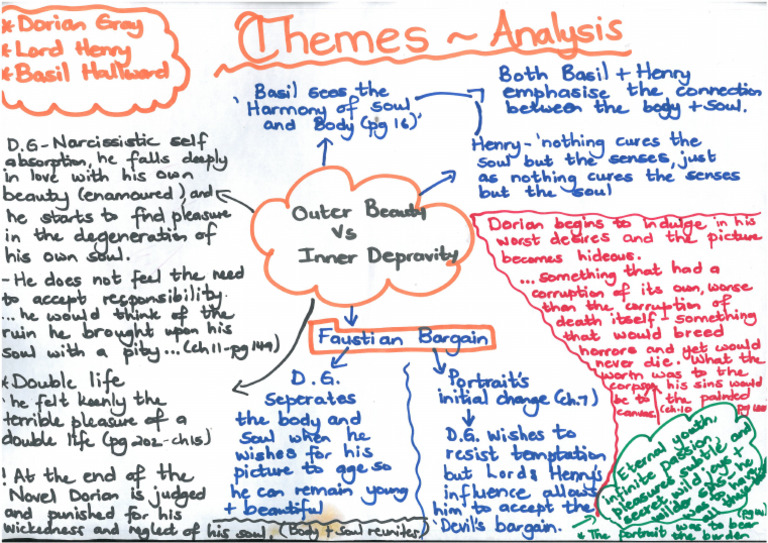 * Dorian Gray
* Lord Henry
* Basil Hallward
Themes ~ Analysis
Basil sees the
'Harmony of soul
and Body (pg 16)'
Both Basil + Henry
emphasise the connection
between the body + soul.
Henry - 'nothing cures the
soul but the senses, just
as nothing cures the senses
but the soul
D.G - Narcissistic self
absorption, he falls deeply
in love with his own
beauty (enamoured) and
he starts to find pleasure
in the degeneration of
his own soul.
- He does not feel the need
to accept responsibility.
... he would think of the
ruin he brought upon his
soul with a pity... (ch11-pg149)
* Double life
'he felt keenly the
terrible pleasure of a
double life (pg202-ch15)
! At the end of the
Novel Dorian is judged
and punished for his
wickedness and neglect of his soul. (Body + soul reunites)
Outer Beauty
Vs
Inner Depravity
Faustian Bargain
D.G.
Seperates
the body and
Soul when he
wishes for his
picture to age so
he can remain young
+ beautiful
Portrait's
initial change (ch.7)
D.G. wishes to
resist temptation
but Lord Henry's
influence allows
him to accept the
'Devil's bargain.
Dorian begins to indulge in his
worst desires and the picture
becomes hideous.
... something that had a
corruption of its own, worse
than the corruption of
death itself - something
that would breed
horrors and yet would
never die. What the
worm was to the
corpse, his sins would
be to the painted
canvas. (ch.10 pg
Eternal youth,
infinite passion,
pleasures subtle and
secret, wild joys +
wilder sins - he
was to have
(pg
* The portrait was to bear
the burden